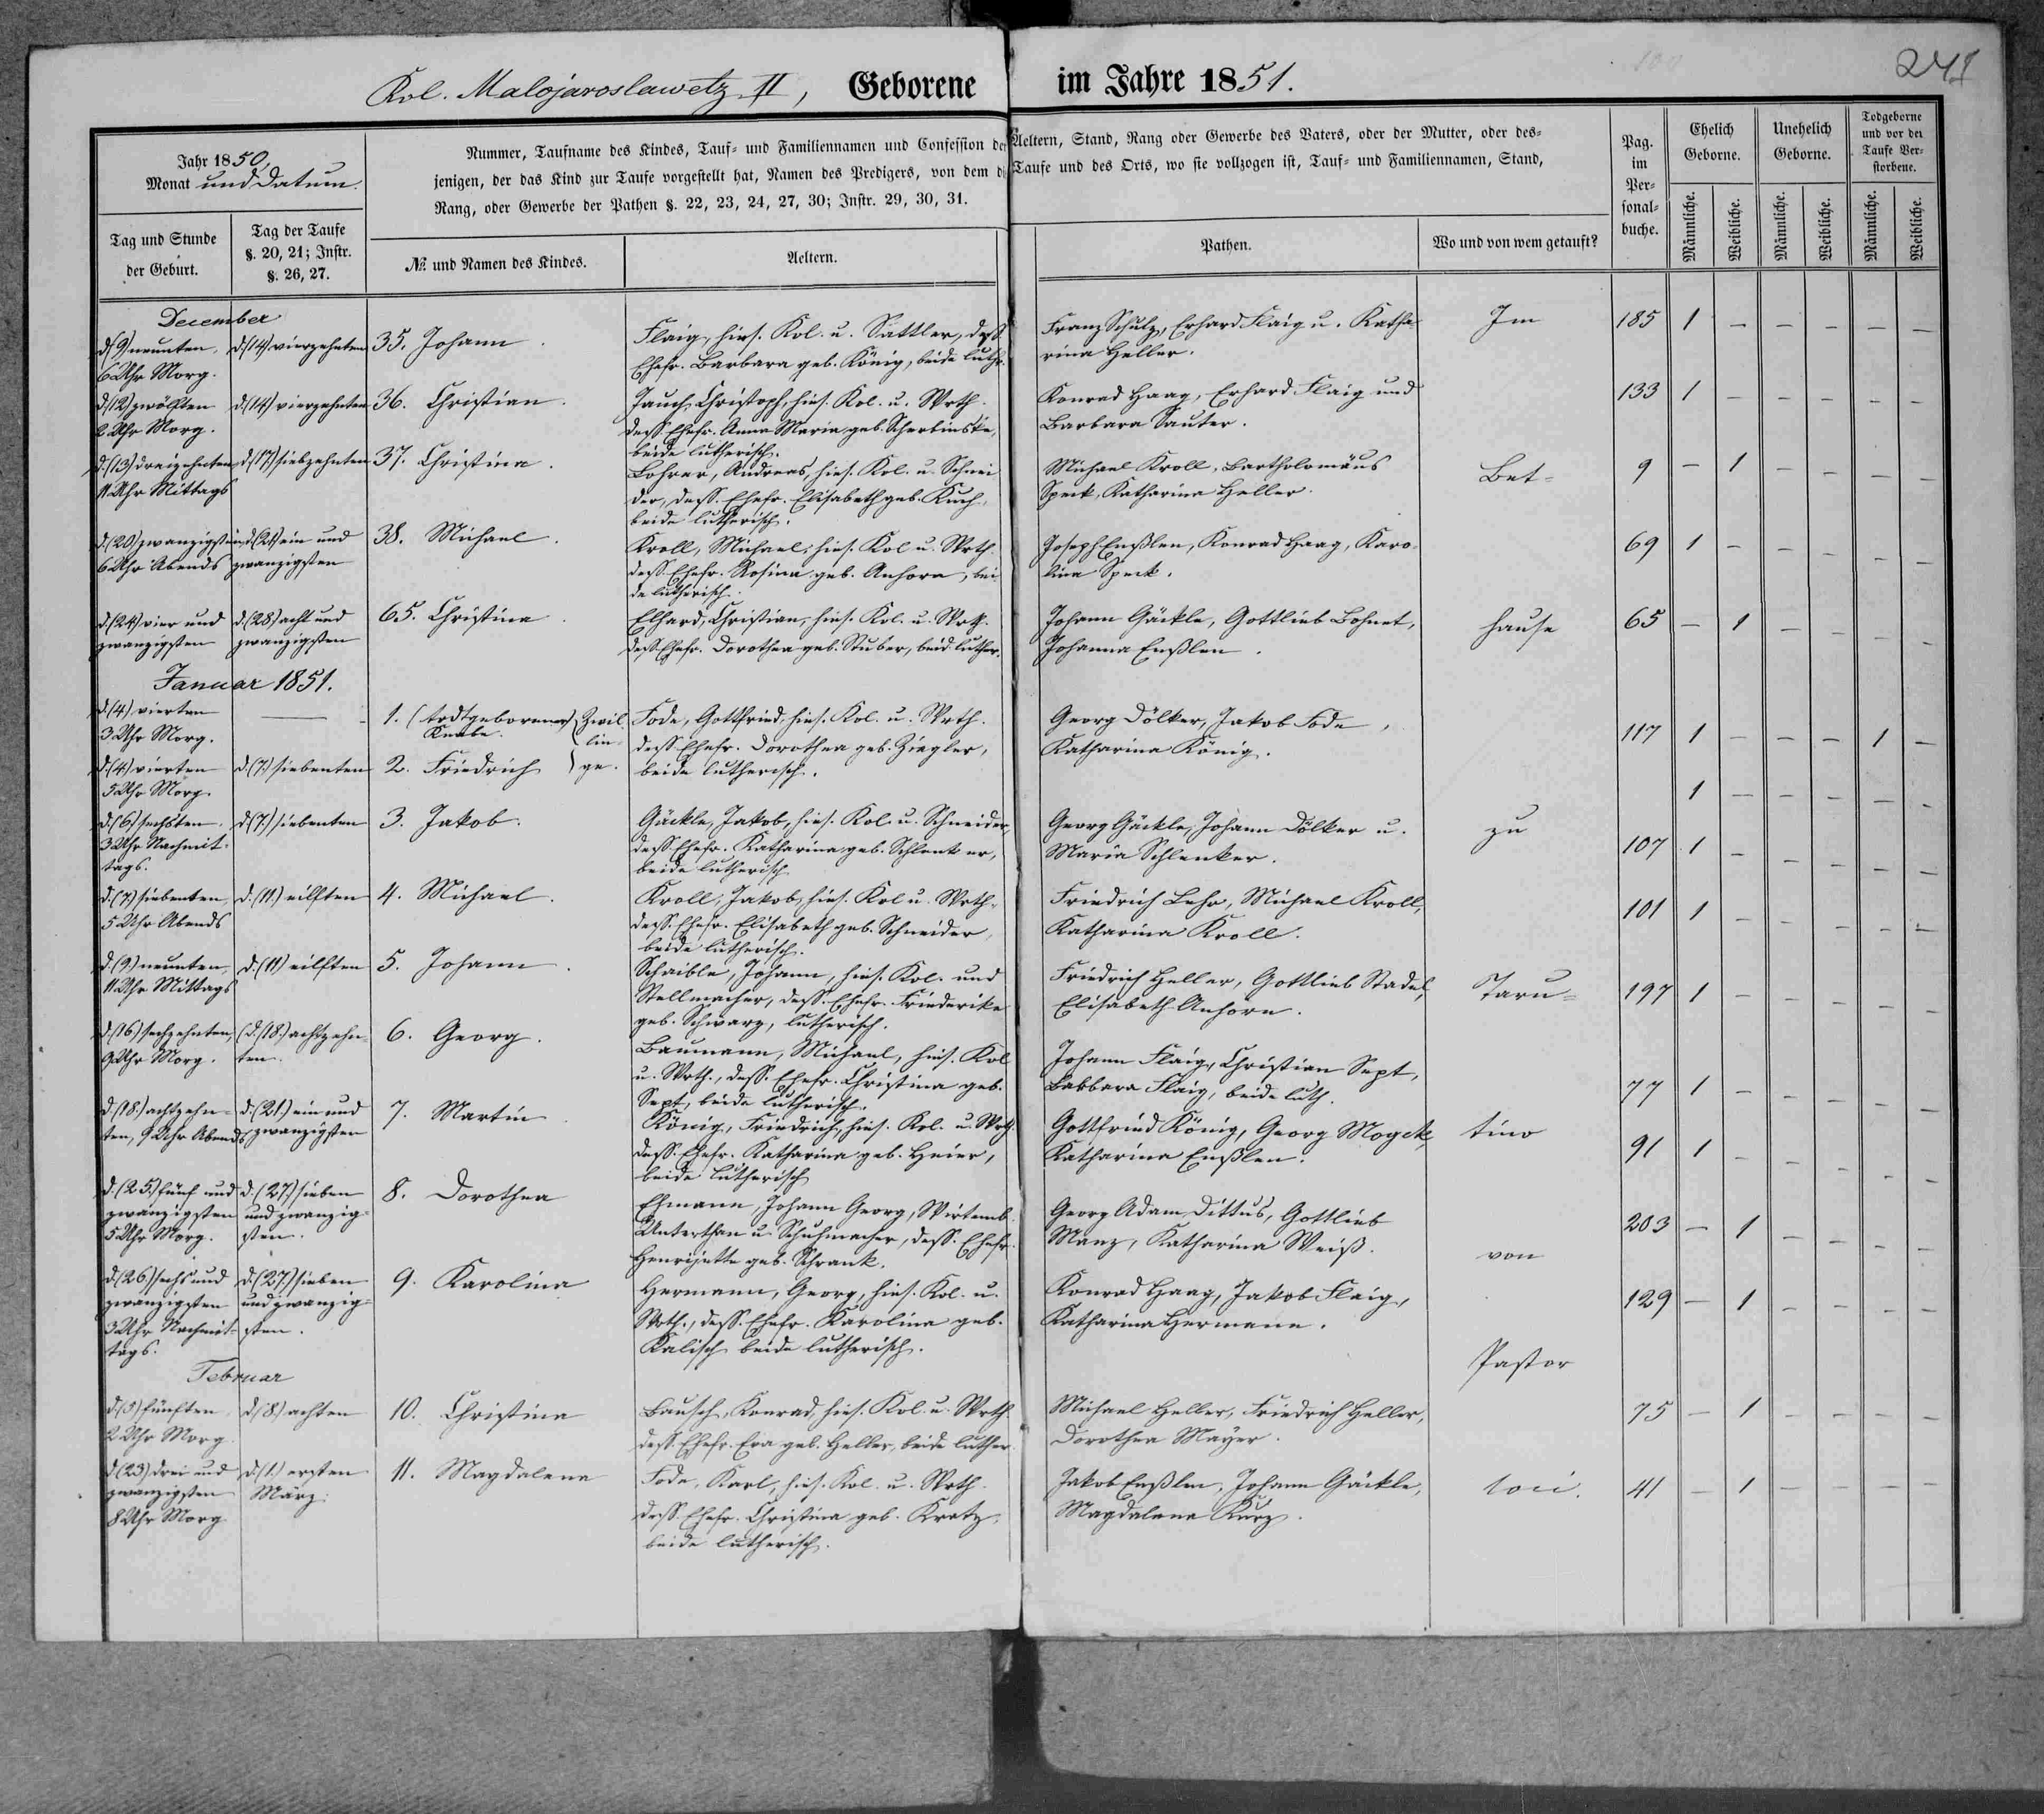 241
Kol. Malojaroslawetz II, Geborene im Jahre 1851.
Jahr 1850,
Monat und Datum.
Nummer, Taufname des Kindes, Tauf- und Familiennamen und Confession der Aeltern, Stand, Rang oder Gewerbe des Vaters, oder der Mutter, oder des-
jenigen, der das Kind zur Taufe vorgestellt hat, Namen des Predigers, von dem die Taufe und des Orts, wo sie vollzogen ist, Tauf- und Familiennamen, Stand,
Rang, oder Gewerbe der Pathen §. 22, 23, 24, 27, 30; Instr. 29, 30, 31.
Tag und Stunde
der Geburt.
Tag der Taufe
§. 20, 21; Instr.
§. 26, 27.
№ und Namen des Kindes.
Aeltern.
Pathen.
Wo und von wem getauft?
Pag.
im
Per-
sonal-
buche.
Ehelich
Geborne.
Unehelich
Geborne.
Todgeborne
und vor der
Taufe Ver-
storbene.
Männliche.
Weibliche.
Männliche.
Weibliche.
Männliche.
Weibliche.
December
d. (9) neunten,
6 Uhr Morg.
d. (14) vierzehnten
35. Johann.
Flaig, hies. Kol. u. Sattler, dess
Ehefr. Barbara geb. König, beide luthr.
Franz Schulz, Erhard Flaig u. Katha
rina Heller.
Im
185 1 – – – – –
d. (12) zwölften
2 Uhr Morg.
d. (14) vierzehnten
36. Christian.
Jauch, Christoph, hies. Kol. u. Wrth.
dess. Ehefr. Anna Maria geb. Scherbinske,
beide lutherisch.
Konrad Haag, Erhard Flaig und
Barbara Sauter.
133 1 – – – – –
d. (13) dreizehnten
11 Uhr Mittags
d. (17) siebzehnten
37. Christina.
Lohrer, Andreas, hies. Kol. u. Schnei
der, dess. Ehefr. Elisabeth geb. Kuch,
beide lutherisch.
Michael Kroll, Bartholomäus
Speck, Katharina Heller.
Bet-
9 – 1 – – – –
d. (20) zwanzigsten
6 Uhr Abends
d. (21) ein und
zwanzigsten
38. Michael.
Kroll, Michael, hies. Kol u. Wrth.
dess. Ehefr. Rosina geb. Anhorn, bei
de lutherisch.
Joseph Enßlen, Konrad Haag, Karo
lina Speck.
69 1 – – – – –
d. (24) vier und
zwanzigsten
d. (28) acht und
zwanzigsten
65. Christina.
Elhard, Christian, hies. Kol. u. Wrth.
dess. Ehefr. Dorothea geb. Stuber, beid. luther.
Johann Gäckle, Gottlieb Bohnet,
Johanna Enßlen.
hause
65 – 1 – – – –
Januar 1851.
d. (4) vierten
3 Uhr Morg.
1. (todtgeborener
Knabe.
Zwil
lin-
ge.
Fode, Gottfried, hies. Kol. u. Wrth.
dess. Ehefr. Dorothea geb. Ziegler,
beide lutherisch.
Georg Dölker, Jakob Fode,
Katharina König.
117 1 – – – 1 –
d. (4) vierten
5 Uhr Morg.
d. (7) siebenten
2. Friedrich
1 – – – – –
d. (6) sechsten
3 Uhr Nachmit-
tags.
d. (7) siebenten
3. Jakob.
Gäckle, Jakob, hies. Kol. u. Schneider,
dess. Ehefr. Katharina geb. Schlenker,
beide lutherisch
Georg Gäckle, Johann Dölker u.
Maria Schlenker.
zu
107 1 – – – – –
d. (7) siebenten,
5 Uhr Abends
d. (11.) eilften
4. Michael.
Kroll, Jakob, hies. Kol u. Wrth.
dess. Ehefr. Elisabeth geb. Schneider,
beide lutherisch.
Friedrich Lehr, Michael Kroll,
Katharina Kroll.
101 1 – – – – –
d. (9) neunten,
11 Uhr Mittags
d. (11) eilften
5. Johann.
Schaible, Johann, hies. Kol. und
Stellmacher, dess. Ehefr. Friederike
geb. Schwarz, lutherisch.
Friedrich Heller, Gottlieb Stadel,
Elisabeth Anhorn.
Taru-
197 1 – – – – –
d. (16) sechzehnten,
9 Uhr Morg.
(d. (18.) achtzehn-
ten.
6. Georg.
Baumann, Michael, hies. Kol
u. Wrth., dess. Ehefr. Christina geb.
Sept, beide lutherisch.
Johann Flaig, Christian Sept,
Barbara Flaig, beide luth.
77 1 – – – – –
d. (18.) achtzehn-
ten, 9 Uhr Abends
d. (21.) ein und
zwanzigsten
7. Martin.
König, Friedrich, hies. Kol. u. Wrth.
dess. Ehefr. Katharina geb. Heier,
beide lutherisch
Gottfried König, Georg Mogck,
Katharina Enßlen.
tino
91 1 – – – – –
d. (25.) fünf und
zwanzigsten
5 Uhr Morg.
d. (27.) sieben
und zwanzig-
sten.
8. Dorothea
Ehmann, Johann Georg, Wirtemb.
Unterthan u. Schuhmacher, dess. Ehefr.
Henrijette geb. Schrank.
Georg Adam Dittus, Gottlieb
Manz, Katharina Weiß.
von
203 – 1 – – – –
d. (26) sechs und
zwanzigsten
3 Uhr Nachmit-
tags.
d. (27.) sieben
und zwanzig-
sten.
9. Karolina
Hermann, Georg, hies. Kol. u.
Wrth., dess. Ehefr. Karolina geb.
Kalisch beide lutherisch.
Konrad Haag, Jakob Flaig,
Katharina Hermann.
129 – 1 – – – –
Pastor
Februar
d. (5) fünften,
2 Uhr Morg.
d. (8) achten
10. Christina
Bausch, Konrad, hies. Kol. u. Wrth
dess. Ehefr. Eva geb. Heller, beide luther.
Michael Heller, Friedrich Heller,
Dorothea Mayer.
75 – 1 – – – –
d. (23) drei und
zwanzigsten
8 Uhr Morg.
d. (1.) ersten
März.
11. Magdalena
Fode, Karl, hies. Kol. u. Wrth.
dess. Ehefr. Christina geb. Kratz,
beide lutherisch.
Jakob Enßlen, Johann Gäckle,
Magdalena Kurz.
loci.
41 – 1 – – – –